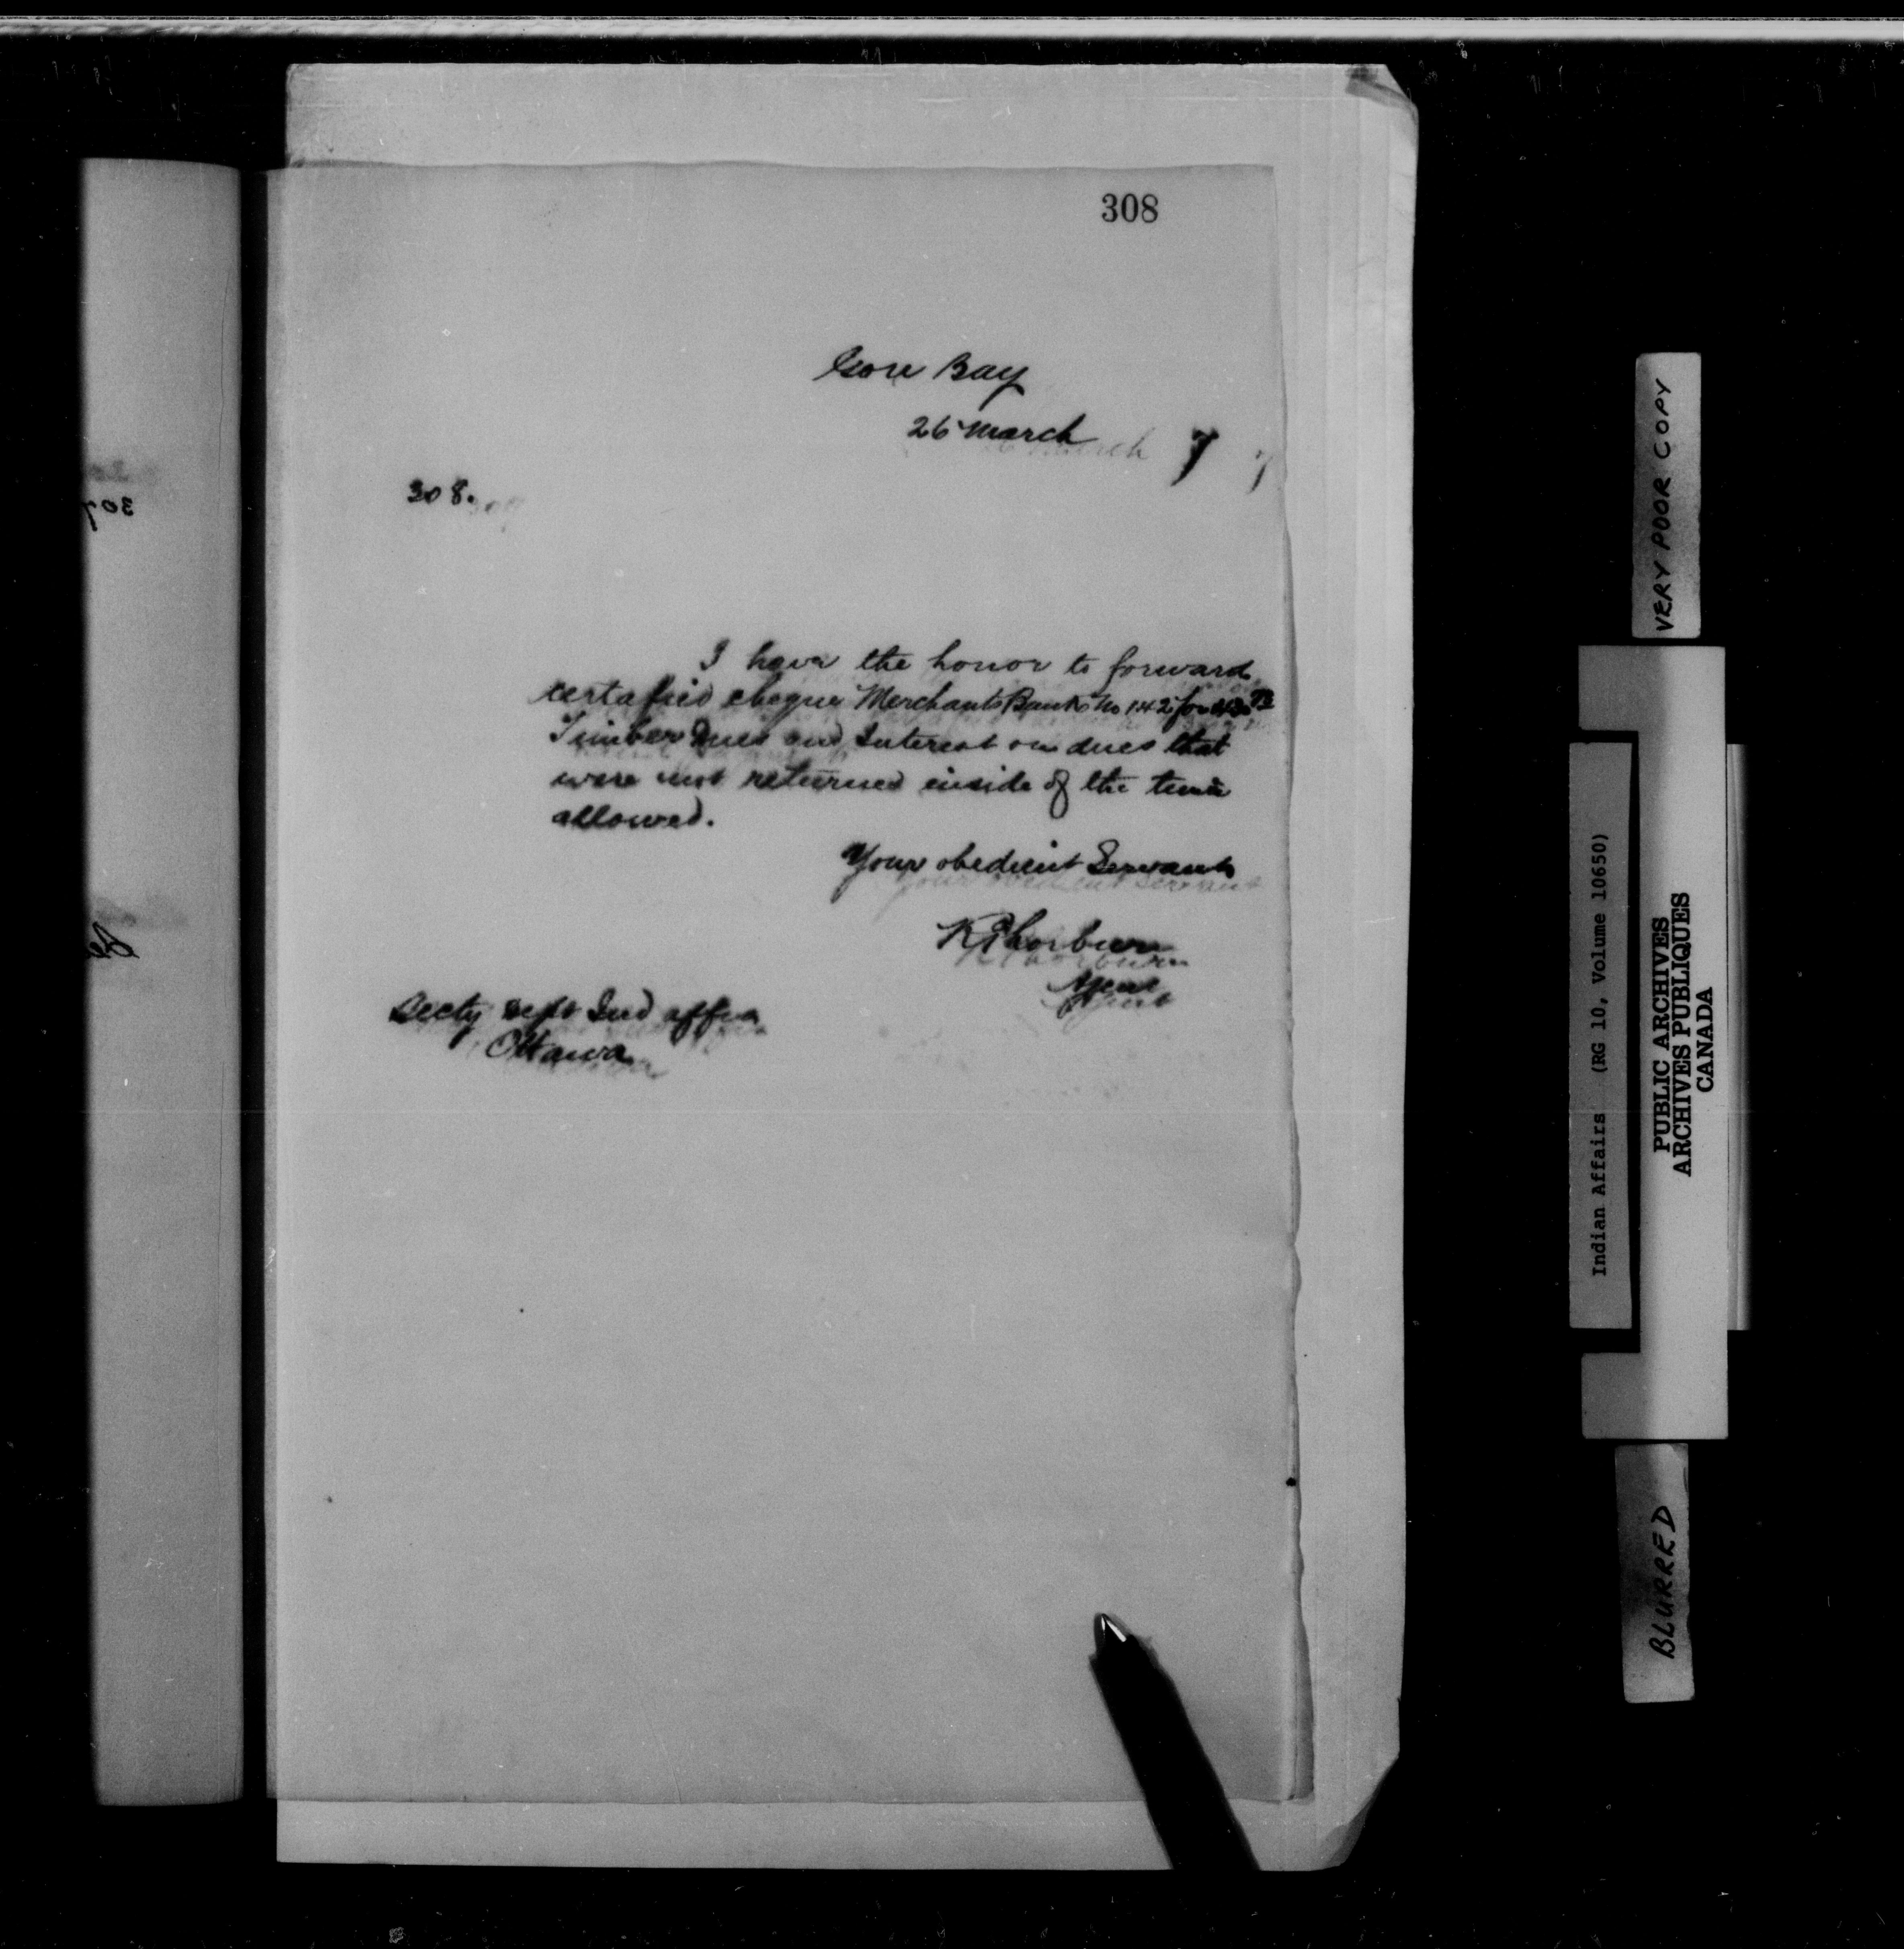 308
Gore Bay
26 March 7
308.
I have the honor to forward
certafied cheque Merchants Bank No 142 for
Timber Dues and Interest on dues that
were not returned inside of the time
allowed.
Your obedient Servant
R Thorburn
Agent
Secty Dept Ind affrs
Ottawa
307
VERY POOR COPY
Indian Affairs (RG 10, Volume 10650)
PUBLIC ARCHIVES
ARCHIVES PUBLIQUES
CANADA
BLURRED